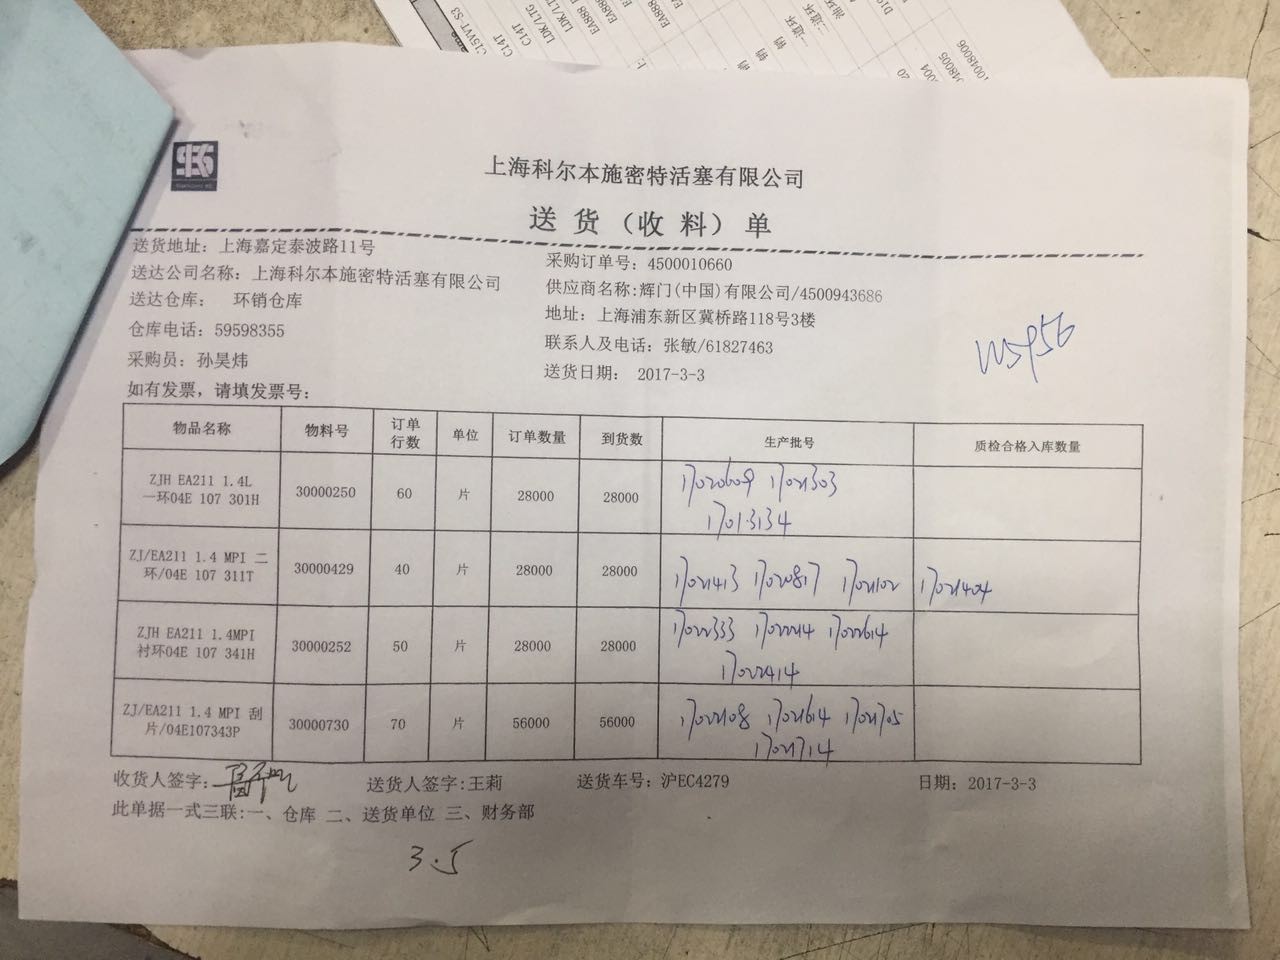 上海科尔本施密特活塞有限公司
送 货 （收 料） 单
送货地址：上海嘉定泰波路11号
送达公司名称：上海科尔本施密特活塞有限公司
送达仓库： 环销仓库
仓库电话：59598355
采购员：孙昊炜
如有发票，请填发票号：
采购订单号：4500010660
供应商名称:辉门(中国)有限公司/4500943686
地址：上海浦东新区冀桥路118号3楼
联系人及电话：张敏/61827463
送货日期： 2017-3-3
物品名称 物料号 订单行数 单位 订单数量 到货数 生产批号 质检合格入库数量
ZJH EA211 1.4L 一环04E 107 301H 30000250 60 片 28000 28000 17020609 17021303
17013134
ZJ/EA211 1.4 MPI 二环/04E 107 311T 30000429 40 片 28000 28000 17021413 17020817 17021102 17021404
ZJH EA211 1.4MPI 衬环04E 107 341H 30000252 50 片 28000 28000 17022333 17022214 17022614
17022414
ZJ/EA211 1.4 MPI 刮片/04E107343P 30000730 70 片 56000 56000 17022108 17021614 17021705
17021714
收货人签字： 送货人签字:王莉 送货车号：沪EC4279 日期：2017-3-3
此单据一式三联:一、仓库 二、送货单位 三、财务部
3.5